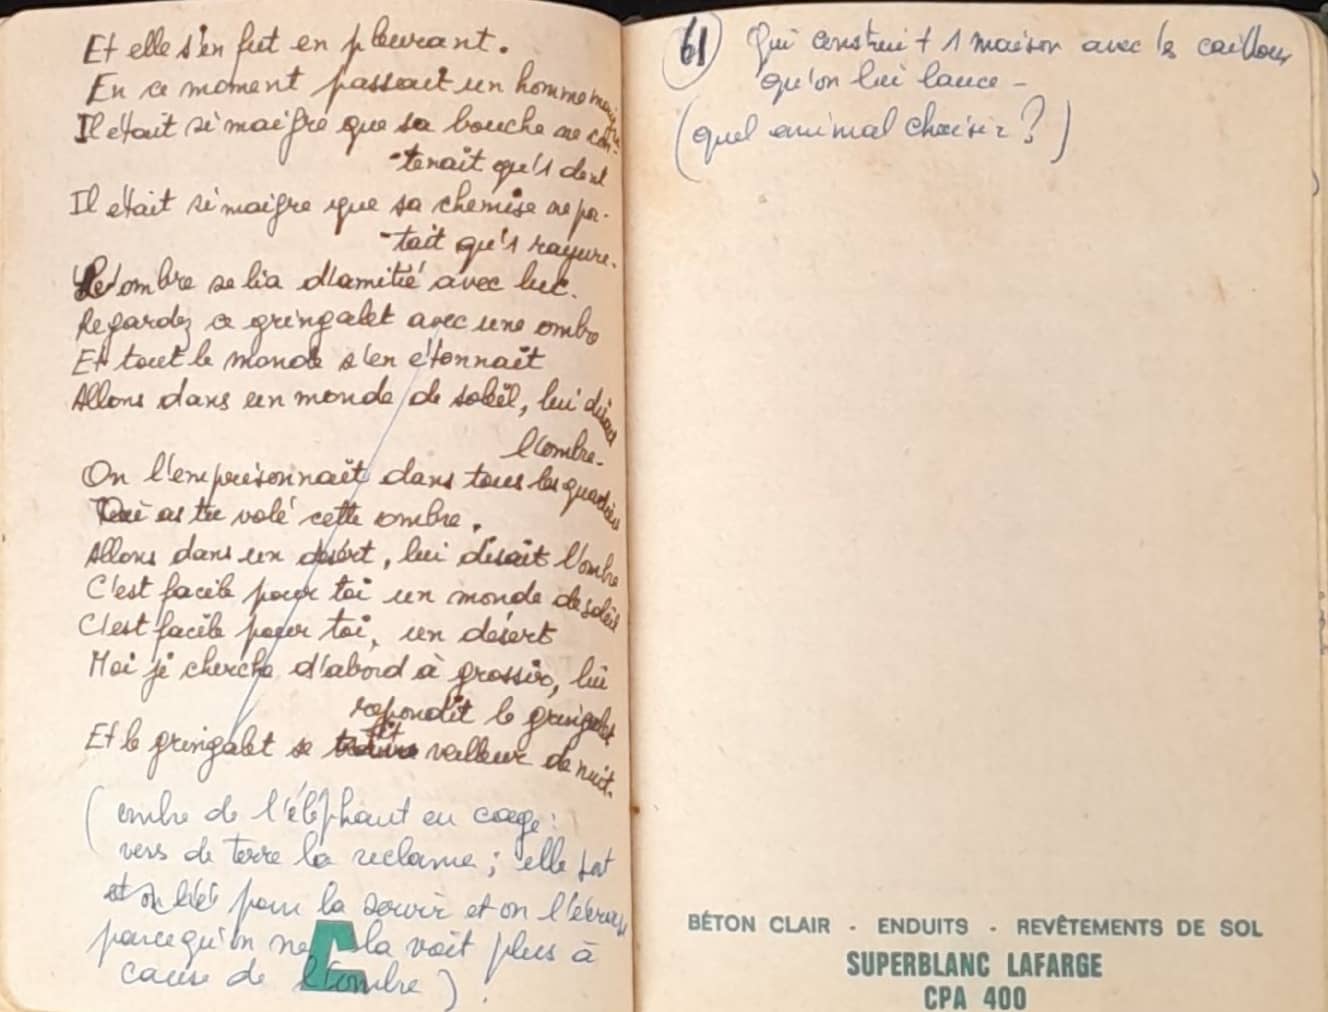 Et elle s'en fut en pleurant.
En ce moment passait un homme maigre
Il était si maigre que sa bouche ne con-
-tenait qu'1 dent
Il était si maigre que sa chemise ne por-
-tait qu'1 rayure.
L'ombre se lia d'amitié avec lui.
Regardez ce gringalet avec une ombre
Et tout le monde s'en étonnait
Allons dans un monde de soleil, lui disait
l'ombre.
On l'emprisonnait dans tous les quartiers
as tu volé cette ombre.
Allons dans un désert, lui disait l'ombre
C'est facile pour toi un monde de soleil
C'est facile pour toi, un désert
Moi je cherche d'abord à grossir, lui
répondit le gringalet
Et le gringalet se fit veilleur de nuit.
(ombre de l'éléphant en cage :
vers de terre la réclame ; elle sort
et pour la sauver et on l'écrase
parcequ'on ne la voit plus à
cause de l'ombre).
C
61 Qui construit 1 maison avec les cailloux
qu'on lui lance -
(quel animal choisir ?)
BÉTON CLAIR - ENDUITS - REVÊTEMENTS DE SOL
SUPERBLANC LAFARGE
CPA 400